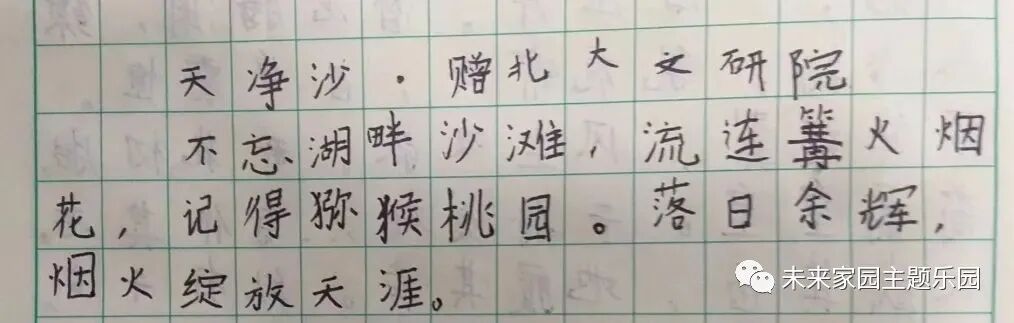 天净沙·赠北大文研院
不忘湖畔沙滩，流连篝火烟
花，记得猕猴桃园。落日余辉，
烟火绽放天涯。
未来家园主题乐园